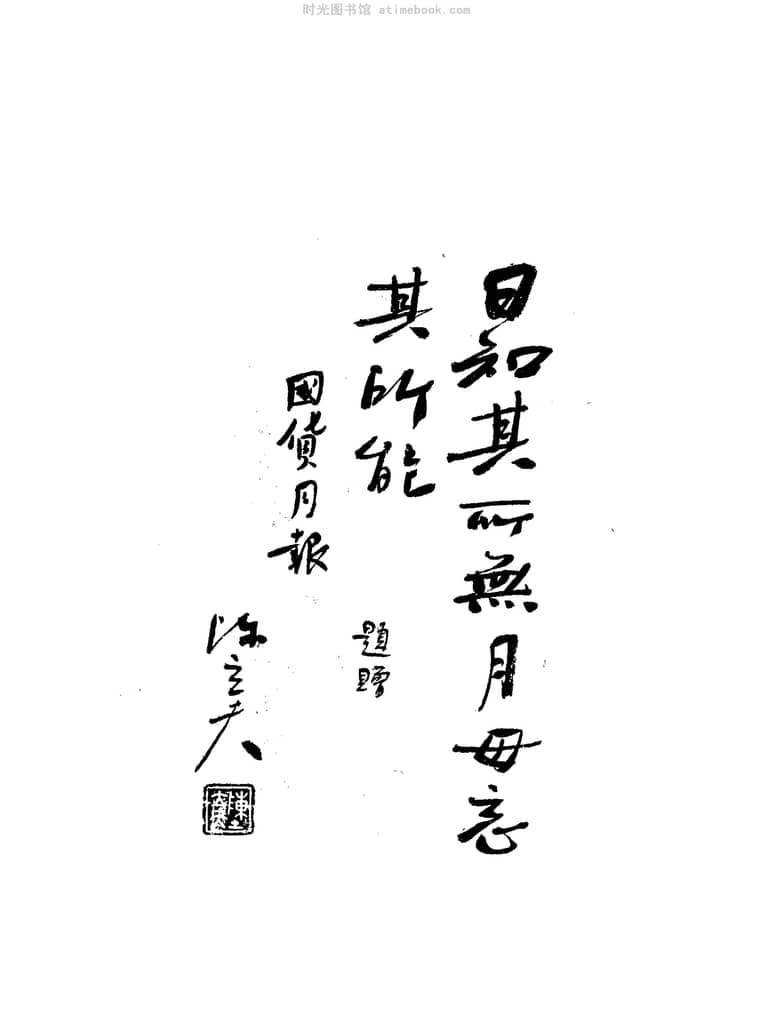 时光图书馆 atimebook.com
日知其所無月毋忘
其所能
題贈
國貨月報
陳立夫